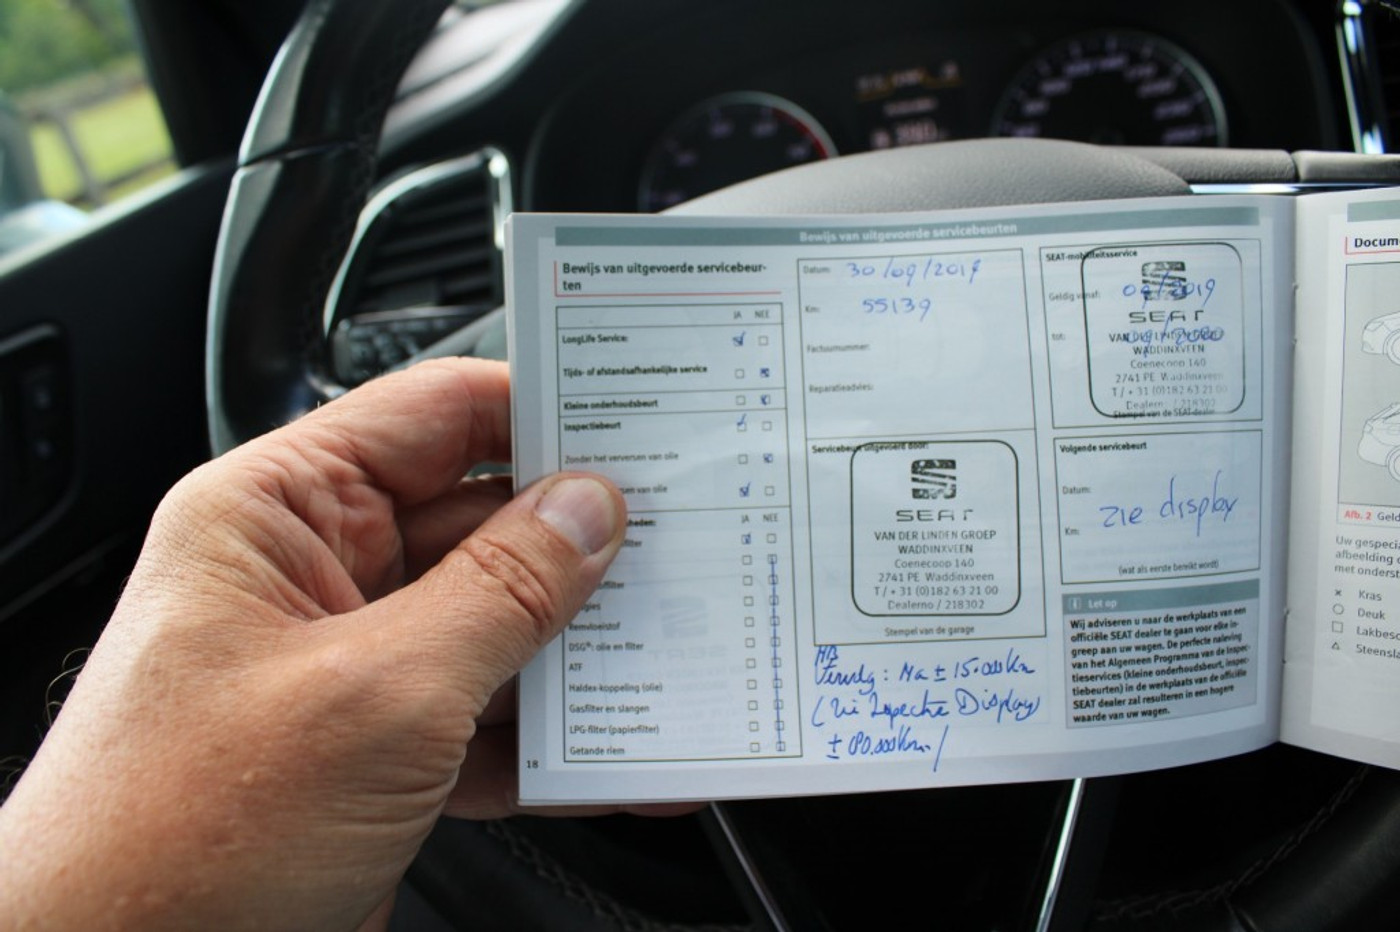 Bewijs van uitgevoerde servicebeurten
Bewijs van uitgevoerde servicebeur-
ten
JA NEE
LongLife Service:
Tijds- of afstandsafhankelijke service
Kleine onderhoudsbeurt
Inspectiebeurt
Zonder het verversen van olie
van olie
JA NEE
Remvloeistof
DSG®: olie en filter
ATF
Haldex-koppeling (olie)
Gasfilter en slangen
LPG-filter (papierfilter)
Getande riem
18
Datum: 30/09/2019
Km: 55139
Factuurnummer:
Reparatieadvies:
Servicebeurt uitgevoerd door:
SEAT
VAN DER LINDEN GROEP
WADDINXVEEN
Coenecoop 140
2741 PE Waddinxveen
T / + 31 (0)182 63 21 00
Dealerno / 218302
Stempel van de garage
Na ± 15.000 km
Display)
SEAT-mobiliteitsservice
Geldig vanaf: 09/2019
tot:
SEAT
VAN DER LINDEN GROEP
WADDINXVEEN
Coenecoop 140
2741 PE Waddinxveen
T / + 31 (0)182 63 21 00
Dealerno / 218302
Stempel van de SEAT-dealer
Volgende servicebeurt
Datum:
zie display
Km:
(wat als eerste bereikt wordt)
Let op
Wij adviseren u naar de werkplaats van een
officiële SEAT dealer te gaan voor elke in-
greep aan uw wagen. De perfecte naleving
van het Algemeen Programma van de Inspec-
tieservices (kleine onderhoudsbeurt, inspec-
tiebeurten) in de werkplaats van de officiële
SEAT dealer zal resulteren in een hogere
waarde van uw wagen.
Afb. 2
Uw
afbeelding
met
Kras
Deuk